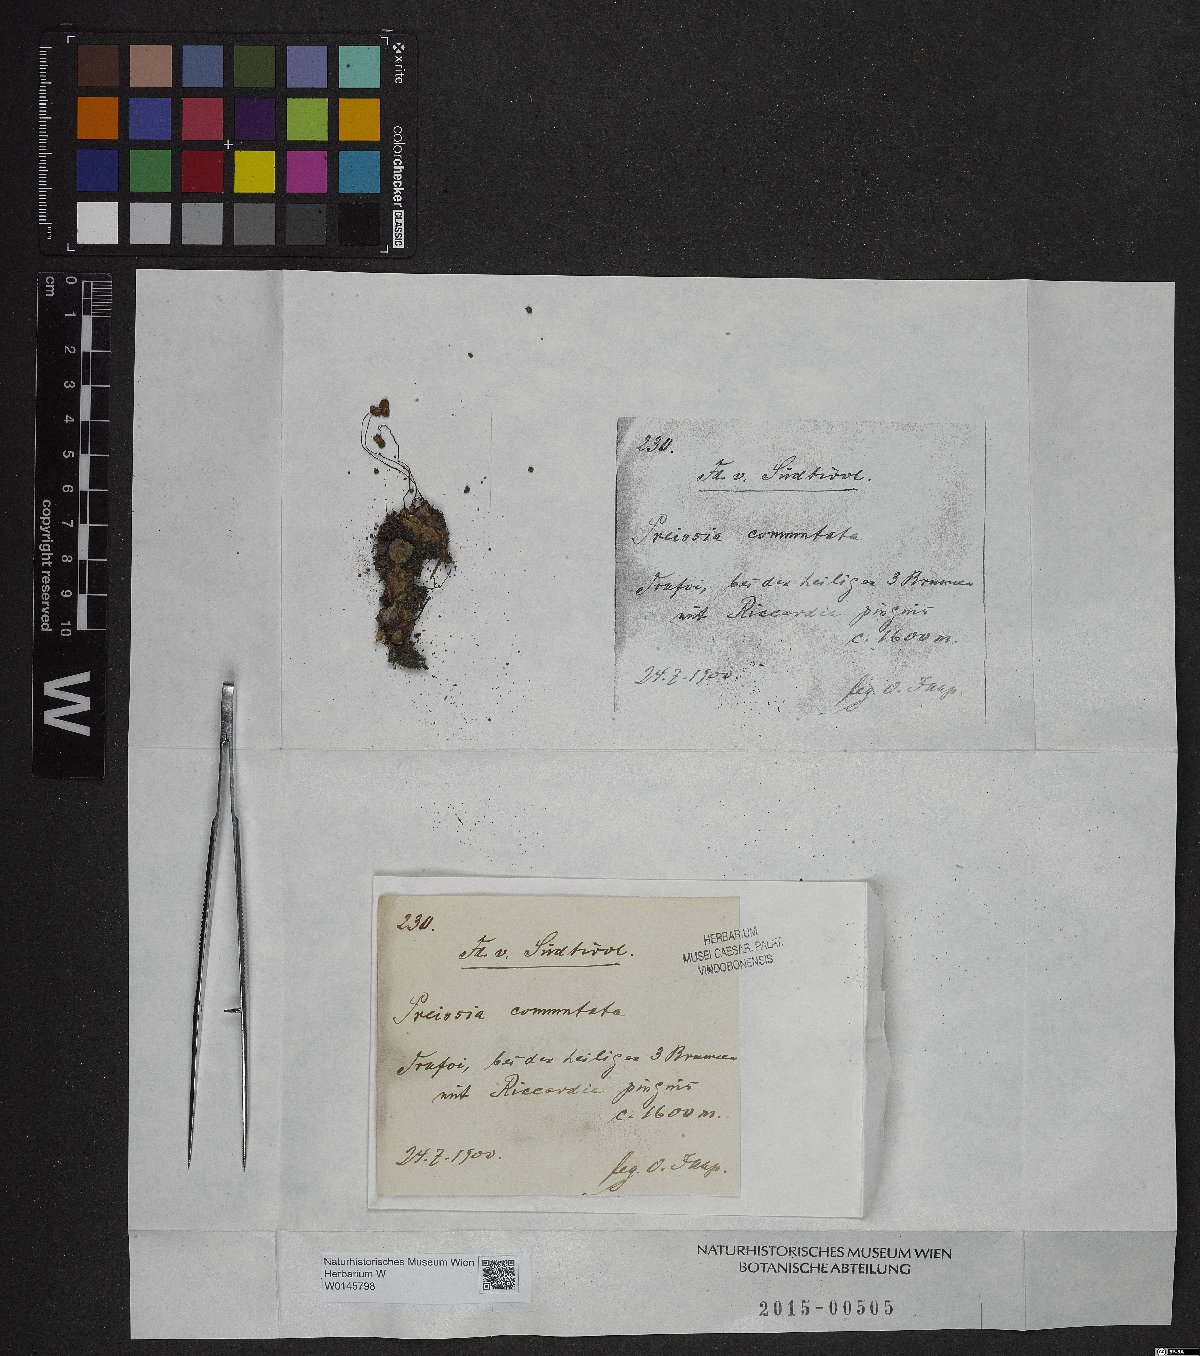 x-rite
colorchecker CLASSIC
cm
0 1 2 3 4 5 6 7 8 9 10
copyright reserved
W
230.
Fl. v. Südtirol.
Preissia commutata
Trafoi, bei den heiligen 3 Brunnen
mit Riccardia pinguis
c. 1600 m.
24.7.1900.
leg. O. Jaap.
230.
Fl. v. Südtirol.
HERBARIUM
MUSEI CAESAR. PALAT.
VINDOBONENSIS
Preissia commutata
Trafoi, bei den heiligen 3 Brunnen
mit Riccardia pinguis
c. 1600 m.
24.7.1900.
leg. O. Jaap.
Naturhistorisches Museum Wien
Herbarium W
W0145798
NATURHISTORISCHES MUSEUM WIEN
BOTANISCHE ABTEILUNG
2015-00505